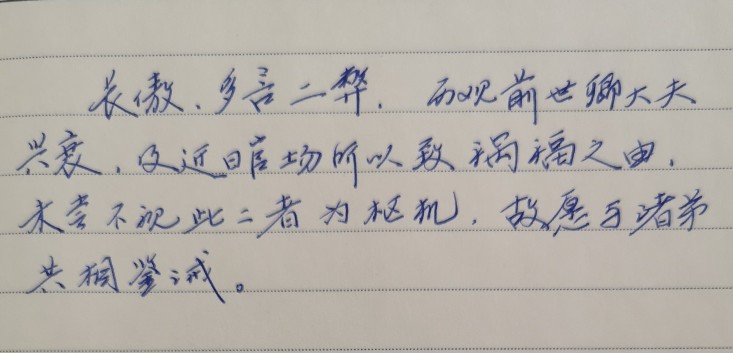 长傲、多言二弊,历观前世卿大夫
兴衰,及近日官场所以致祸福之由,
未尝不视此二者为枢机,故愿与诸弟
共相鉴诫。